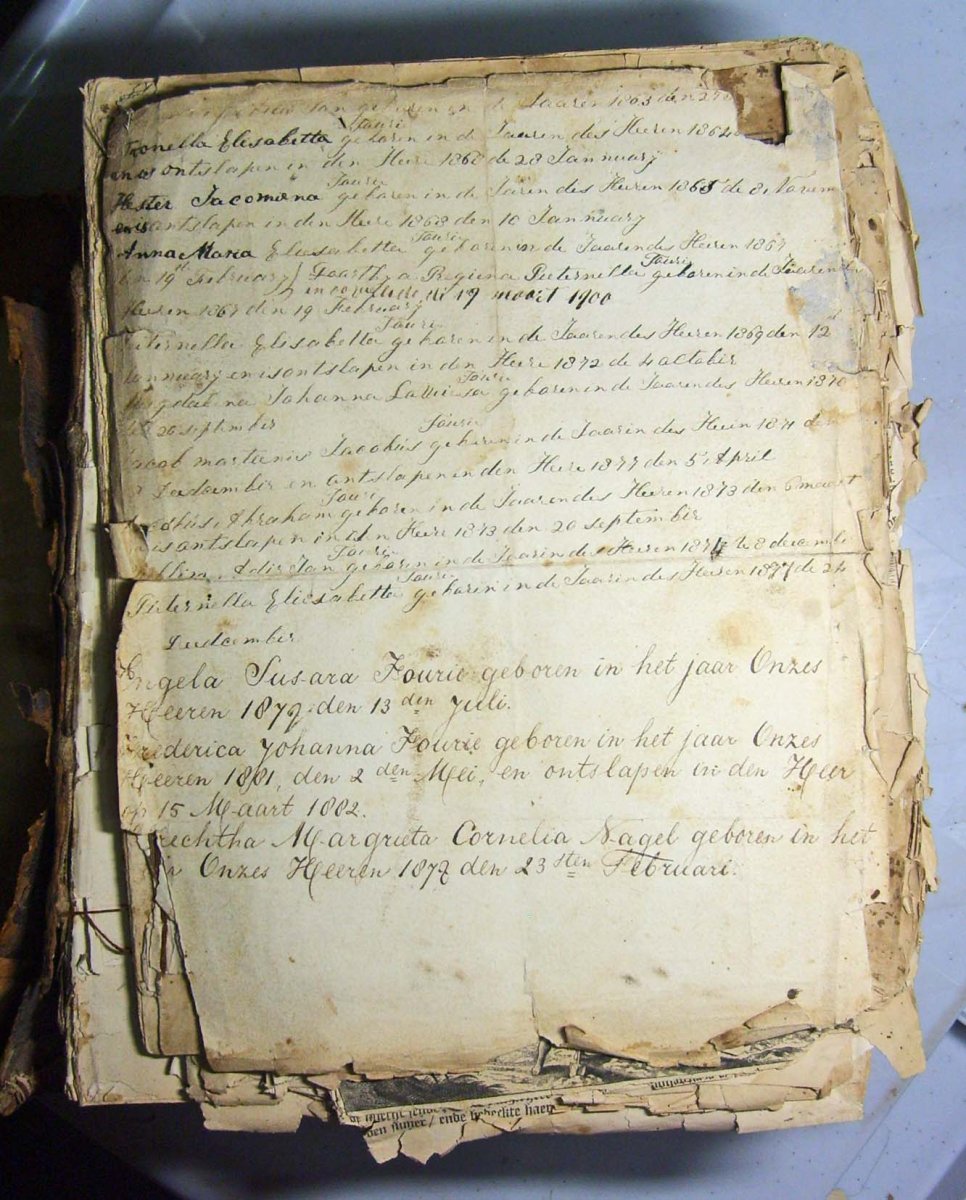 geboren in Jaaren 1863 den
Fouri
ronella Elisabetta geboren in de Jaaren des Heeren 1864
en is ontslapen in den Heere 1868 de 28 Jannuarij
Fouri
Hester Jacomina geboren in de Jaren des Heeren 1865 de 8 Novem
en is ontslapen in den Heere 1868 den 10 Jannuarij
Fouri
Anna Maria Elisabetta geboren in de Jaaren des Heeren 1867
Fouri
den 19 February Regiena Pieternella geboren in de Jaaren
en overlede di 17 maart 1900
Heeren 1867 den 19 February
Fouri
ieternella Elisabetta geboren in de Jaaren des Heeren 1869 den 12
annuarij en is ontslapen in den Heere 1872 de 4 actober
Fouri
agdalena Johanna geboren in de Jaaren des Heeren 1870
20 september
Fouri
acob martienis Jacobus geboren in de Jaaren des Heeren 1871 den
Deesember en ontslapen in den Heere 1877 den 5 April
Fouri
Abraham geboren in de Jaaren des Heeren 1873 den 6 maart
is ontslapen in den Heere 1873 den 20 september
Fouri
Jan geboren in de Jaaren des Heeren 1874 de 8 decembe
Fouri
Pieternella Eliesabetta geboren in de Jaaren des Heeren 1877 de 24
Deedcember
Engela Susara Fourie geboren in het jaar Onzes
Heeren 1879 den 13 den Juli.
Frederica Johanna Fourie geboren in het jaar Onzes
Heeren 1881, den 2 den Mei, en ontslapen in den Heer
op 15 Maart 1882.
rechtha Margrieta Cornelia Nagel geboren in het
Onzes Heeren 1872 den 23 sten Februari.
den / ende bedeckte haer